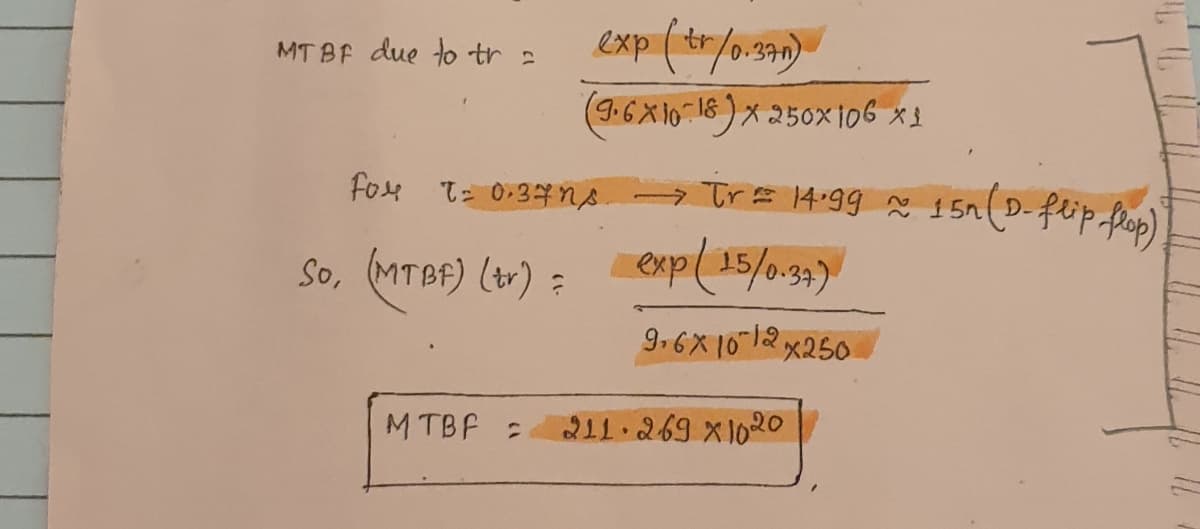 MTBF due to tr = exp (tr/0.37n)
(9.6×10⁻¹⁸) × 250×10⁶ ×1
For τ = 0.37ns → Tr ≅ 14.99 ≈ 15n (D-flip-flop)
So, (MTBF) (tr) = exp(15/0.37)
9.6×10⁻¹² ×250
MTBF = 211.269 ×10²⁰